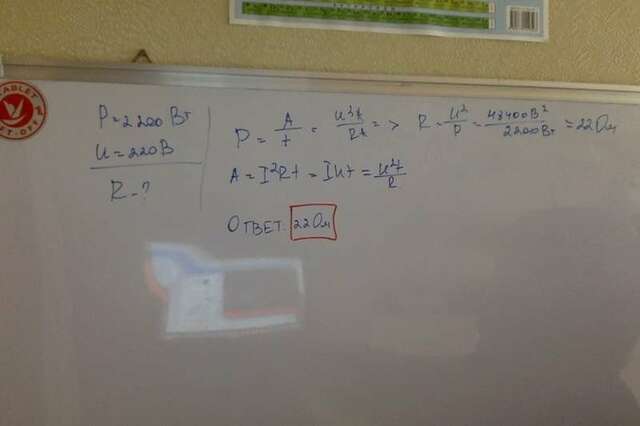 P = 2200 Вт
U = 220 В
R - ?
P = A/t = U²t/Rt => R = U²/P = 48400 В²/2200 Вт = 22 Ом
A = I²Rt = IUt = U²t/R
ОТВЕТ: 22 Ом